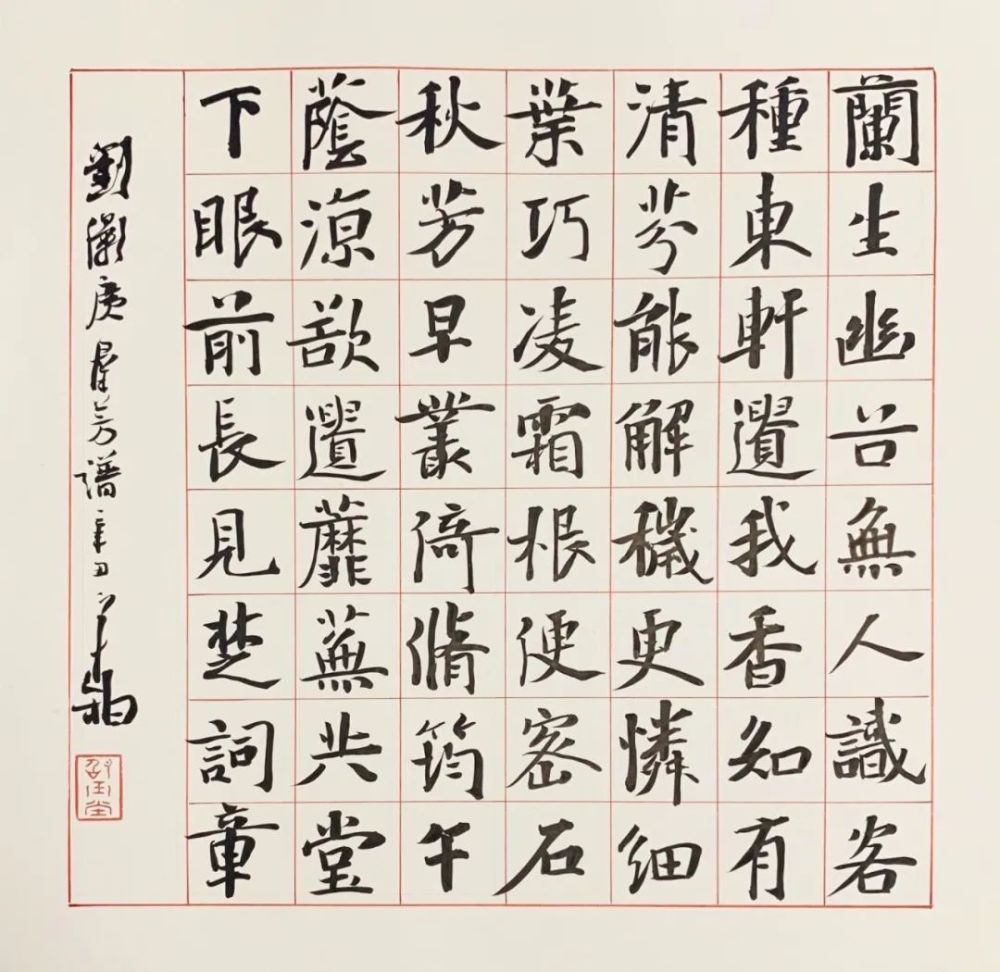 蘭生幽谷無人識客
種東軒遺我香知有
清芬能解穢更憐細
葉巧凌霜根便密石
秋芳早叢倚脩筠午
蔭涼欲遣蘼蕪共堂
下眼前長見楚詞章
劉灝廣群芳譜辛丑